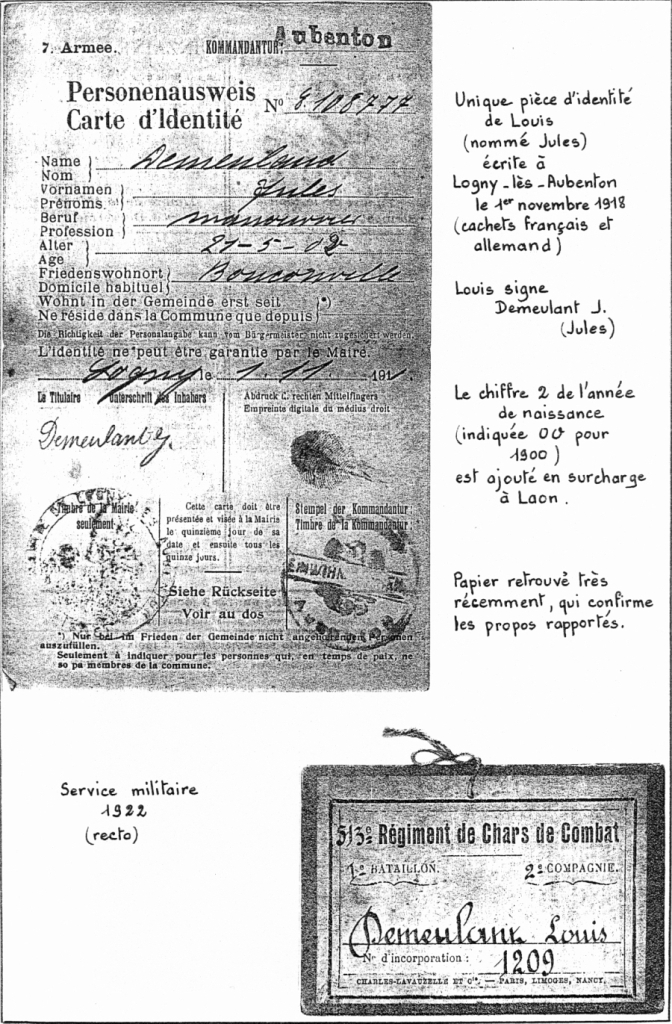 7. Armee. KOMMANDANTUR: Aubenton
Personenausweis
Carte d'Identité Nº 8.108777
Name
Nom
Demeuland
Vornamen
Prénoms
Jules
Beruf
Profession
manouvrier
Alter
Age
21-5-02
Friedenswohnort
Domicile habituel
Bouconville
Wohnt in der Gemeinde erst seit
Ne réside dans la Commune que depuis
*)
Die Richtigkeit der Personalangabe kann vom Bürgermeister nicht zugesichert werden.
L'identité ne peut être garantie par le Maire.
Logny le 1.11. 191
Le Titulaire Unterschrift des Inhabers
Demeulant J.
Abdruck d. rechten Mittelfingers
Empreinte digitale du médius droit
Timbre de la Mairie
seulement
Cette carte doit être
présentée et visée à la Mairie
le quinzième jour de sa
date et ensuite tous les
quinze jours.
Siehe Rückseite
Voir au dos
Stempel der Kommandantur
Timbre de la Kommandantur
*) Nur bei im Frieden der Gemeinde nicht angehörenden Personen
auszufüllen.
Seulement à indiquer pour les personnes qui, en temps de paix, ne
so pa membres de la commune.
Unique pièce d'identité
de Louis
(nommé Jules)
écrite à
Logny-lès-Aubenton
le 1er novembre 1918
(cachets français et
allemand)
Louis signe
Demeulant J.
(Jules)
Le chiffre 2 de l'année
de naissance
(indiquée 00 pour
1900)
est ajouté en surcharge
à Laon.
Papier retrouvé très
récemment, qui confirme
les propos rapportés.
Service militaire
1922
(recto)
513e Régiment de Chars de Combat
1er BATAILLON. 2e COMPAGNIE.
Demeulant Louis
Nº d'incorporation : 1209
CHARLES-LAVAUZELLE ET Cie. — PARIS, LIMOGES, NANCY.